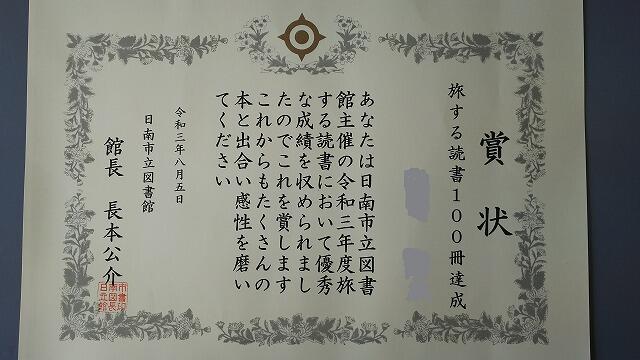 賞状
旅する読書100冊達成
あなたは日南市立図書
館主催の令和三年度旅
する読書において優秀
な成績を収められまし
たのでこれを賞します
これからもたくさんの
本と出合い感性を磨い
てください
令和三年八月五日
日南市立図書館
館長 長本公介